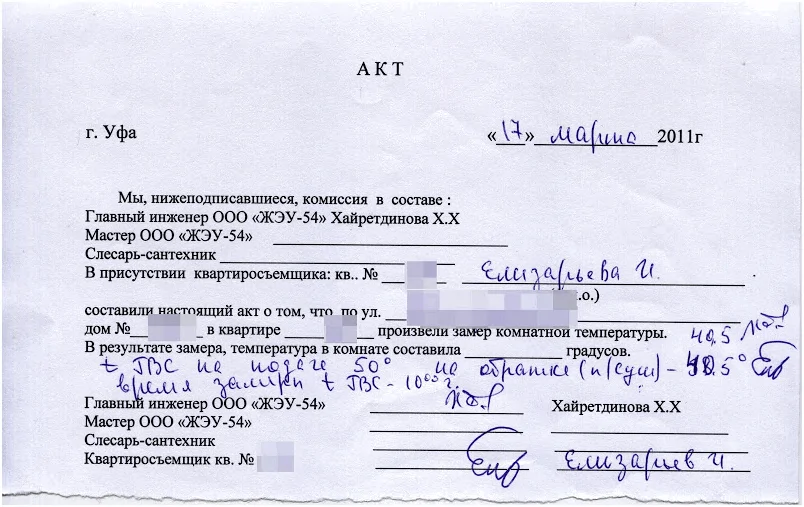 АКТ
г. Уфа «17» марта 2011г
Мы, нижеподписавшиеся, комиссия в составе :
Главный инженер ООО «ЖЭУ-54» Хайретдинова Х.Х
Мастер ООО «ЖЭУ-54»
Слесарь-сантехник
В присутствии квартиросъемщика: кв.. № Елизарьева И.
.о.)
составили настоящий акт о том, что по ул.
дом № в квартире произвели замер комнатной температуры. 40,5
В результате замера, температура в комнате составила градусов.
t ГВС на подаче 50° на обратке (п/суш) - 40.5°
время замера t ГВС - 10 00 г.
Главный инженер ООО «ЖЭУ-54» Хайретдинова Х.Х
Мастер ООО «ЖЭУ-54»
Слесарь-сантехник
Квартиросъемщик кв. № Елизарьев И.